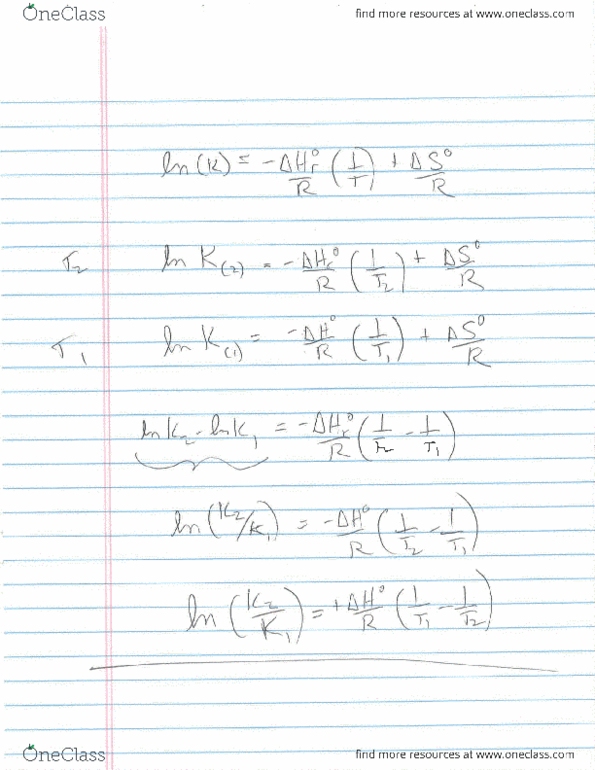 OneClass find more resources at www.oneclass.com
ln(K) = -ΔHr°/R (1/T) + ΔS°/R
T2 ln K(2) = -ΔHr°/R (1/T2) + ΔS°/R
T1 ln K(1) = -ΔH°/R (1/T1) + ΔS°/R
lnK2 - lnK1 = -ΔHr°/R (1/T2 - 1/T1)
ln(K2/K1) = -ΔH°/R (1/T2 - 1/T1)
ln(K2/K1) = +ΔH°/R (1/T1 - 1/T2)
OneClass find more resources at www.oneclass.com